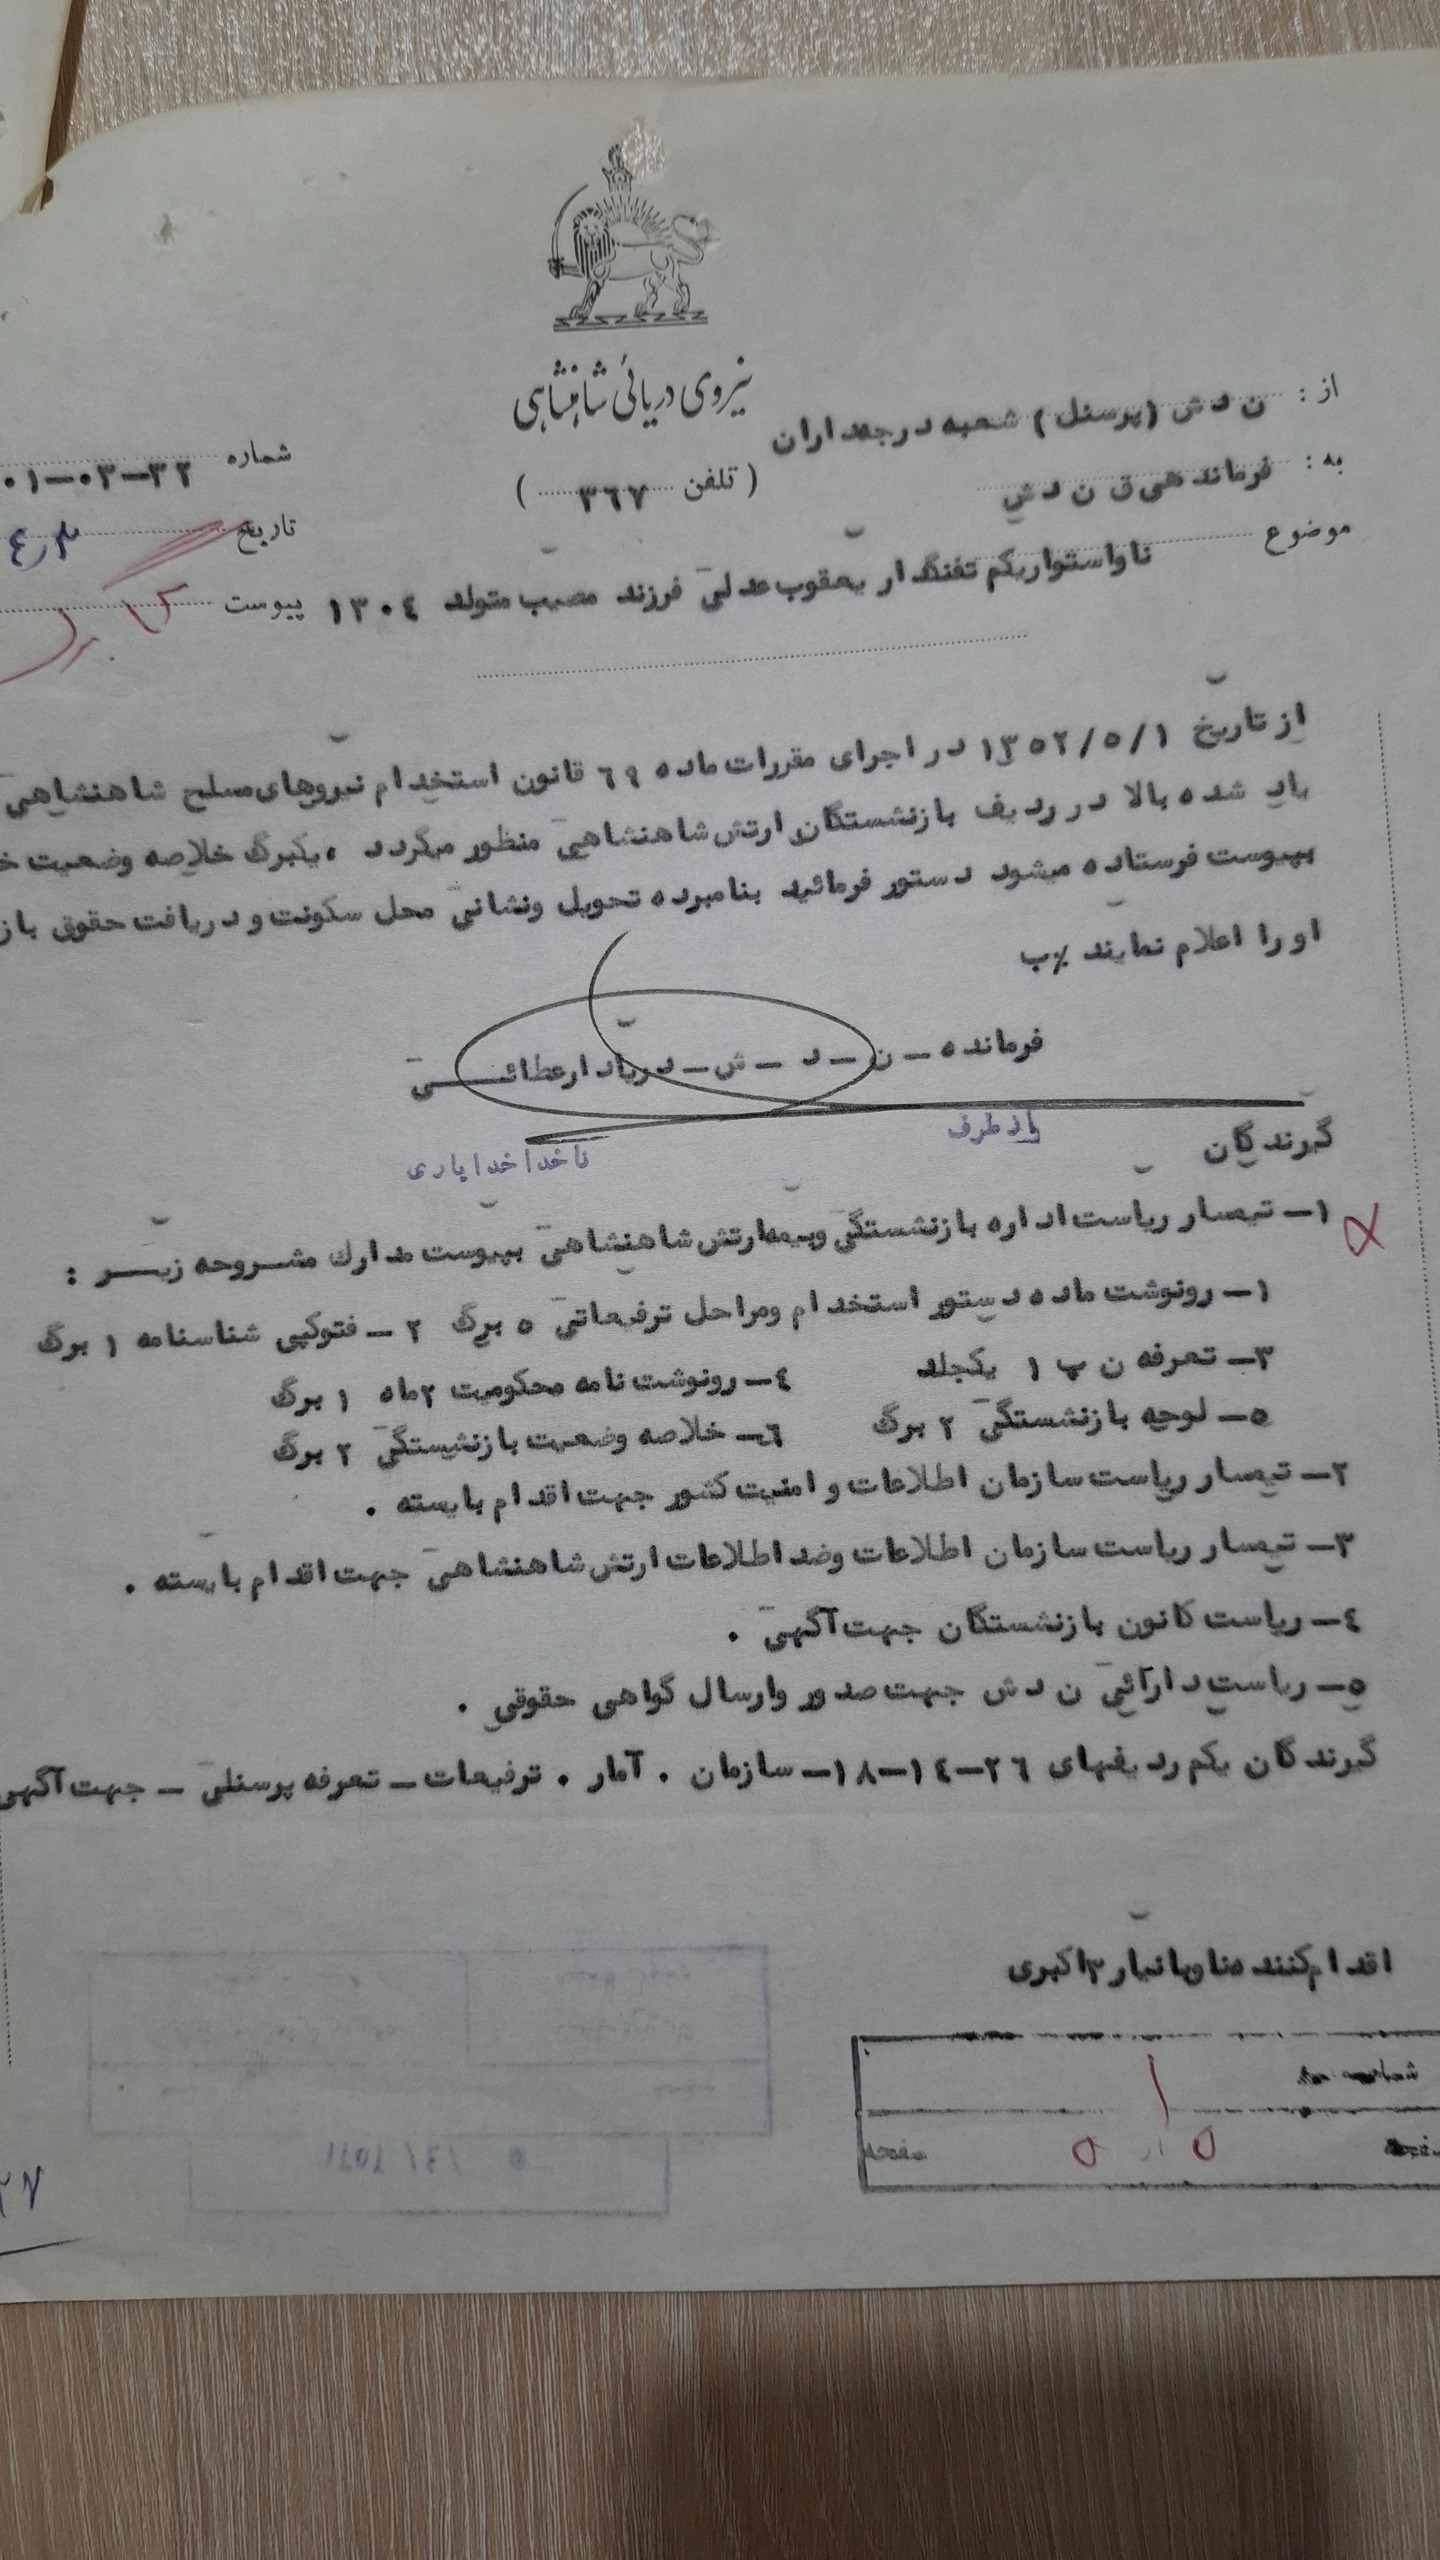 نیروی دریائی شاهنشاهی
از : ن د ش (پرسنل) شعبه درجه‌داران
به : فرماندهی ق ن د ش
( تلفن ۳۶۷ )
شماره ۰۱-۰۳-۳۲
تاریخ
پیوست
موضوع ناواستواریکم تفنگدار یعقوب عدلی فرزند مصیب متولد ۱۳۰۴
از تاریخ ۱۳۵۲/۵/۱ در اجرای مقررات ماده ۶۹ قانون استخدام نیروهای مسلح شاهنشاهی
یاد شده بالا در ردیف بازنشستگان ارتش شاهنشاهی منظور میگردد ، یکبرگ خلاصه وضعیت
بپیوست فرستاده میشود دستور فرمائید بنامبرده تحویل ونشانی محل سکونت و دریافت حقوق
او را اعلام نمایند ٪ب
فرمانده – ن – د – ش – دریادار عطائی
از طرف
ناخدا خدایاری
گیرندگان
۱– تیمسار ریاست اداره بازنشستگی وبیمه ارتش شاهنشاهی بپیوست مدارک مشروحه زیر :
۱– رونوشت ماده دستور استخدام ومراحل ترفیعاتی ۵ برگ ۲ – فتوکپی شناسنامه ۱ برگ
۳– تعرفه ن پ ۱ یکجلد ۴– رونوشت نامه محکومیت ۲ماه ۱ برگ
۵– لوحه بازنشستگی ۲ برگ ۶– خلاصه وضعیت بازنشستگی ۲ برگ
۲– تیمسار ریاست سازمان اطلاعات و امنیت کشور جهت اقدام بایسته .
۳– تیمسار ریاست سازمان اطلاعات وضد اطلاعات ارتش شاهنشاهی جهت اقدام بایسته .
۴– ریاست کانون بازنشستگان جهت آگهی .
۵– ریاست دارائی ن د ش جهت صدور وارسال گواهی حقوقی .
گیرندگان یکم ردیفهای ۲۶–۱۴–۱۸– سازمان . آمار . ترفیعات – تعرفه پرسنلی – جهت آگهی
اقدام‌کننده ناوبانیار۳ اکبری
۱
۵ از ۵ صفحه